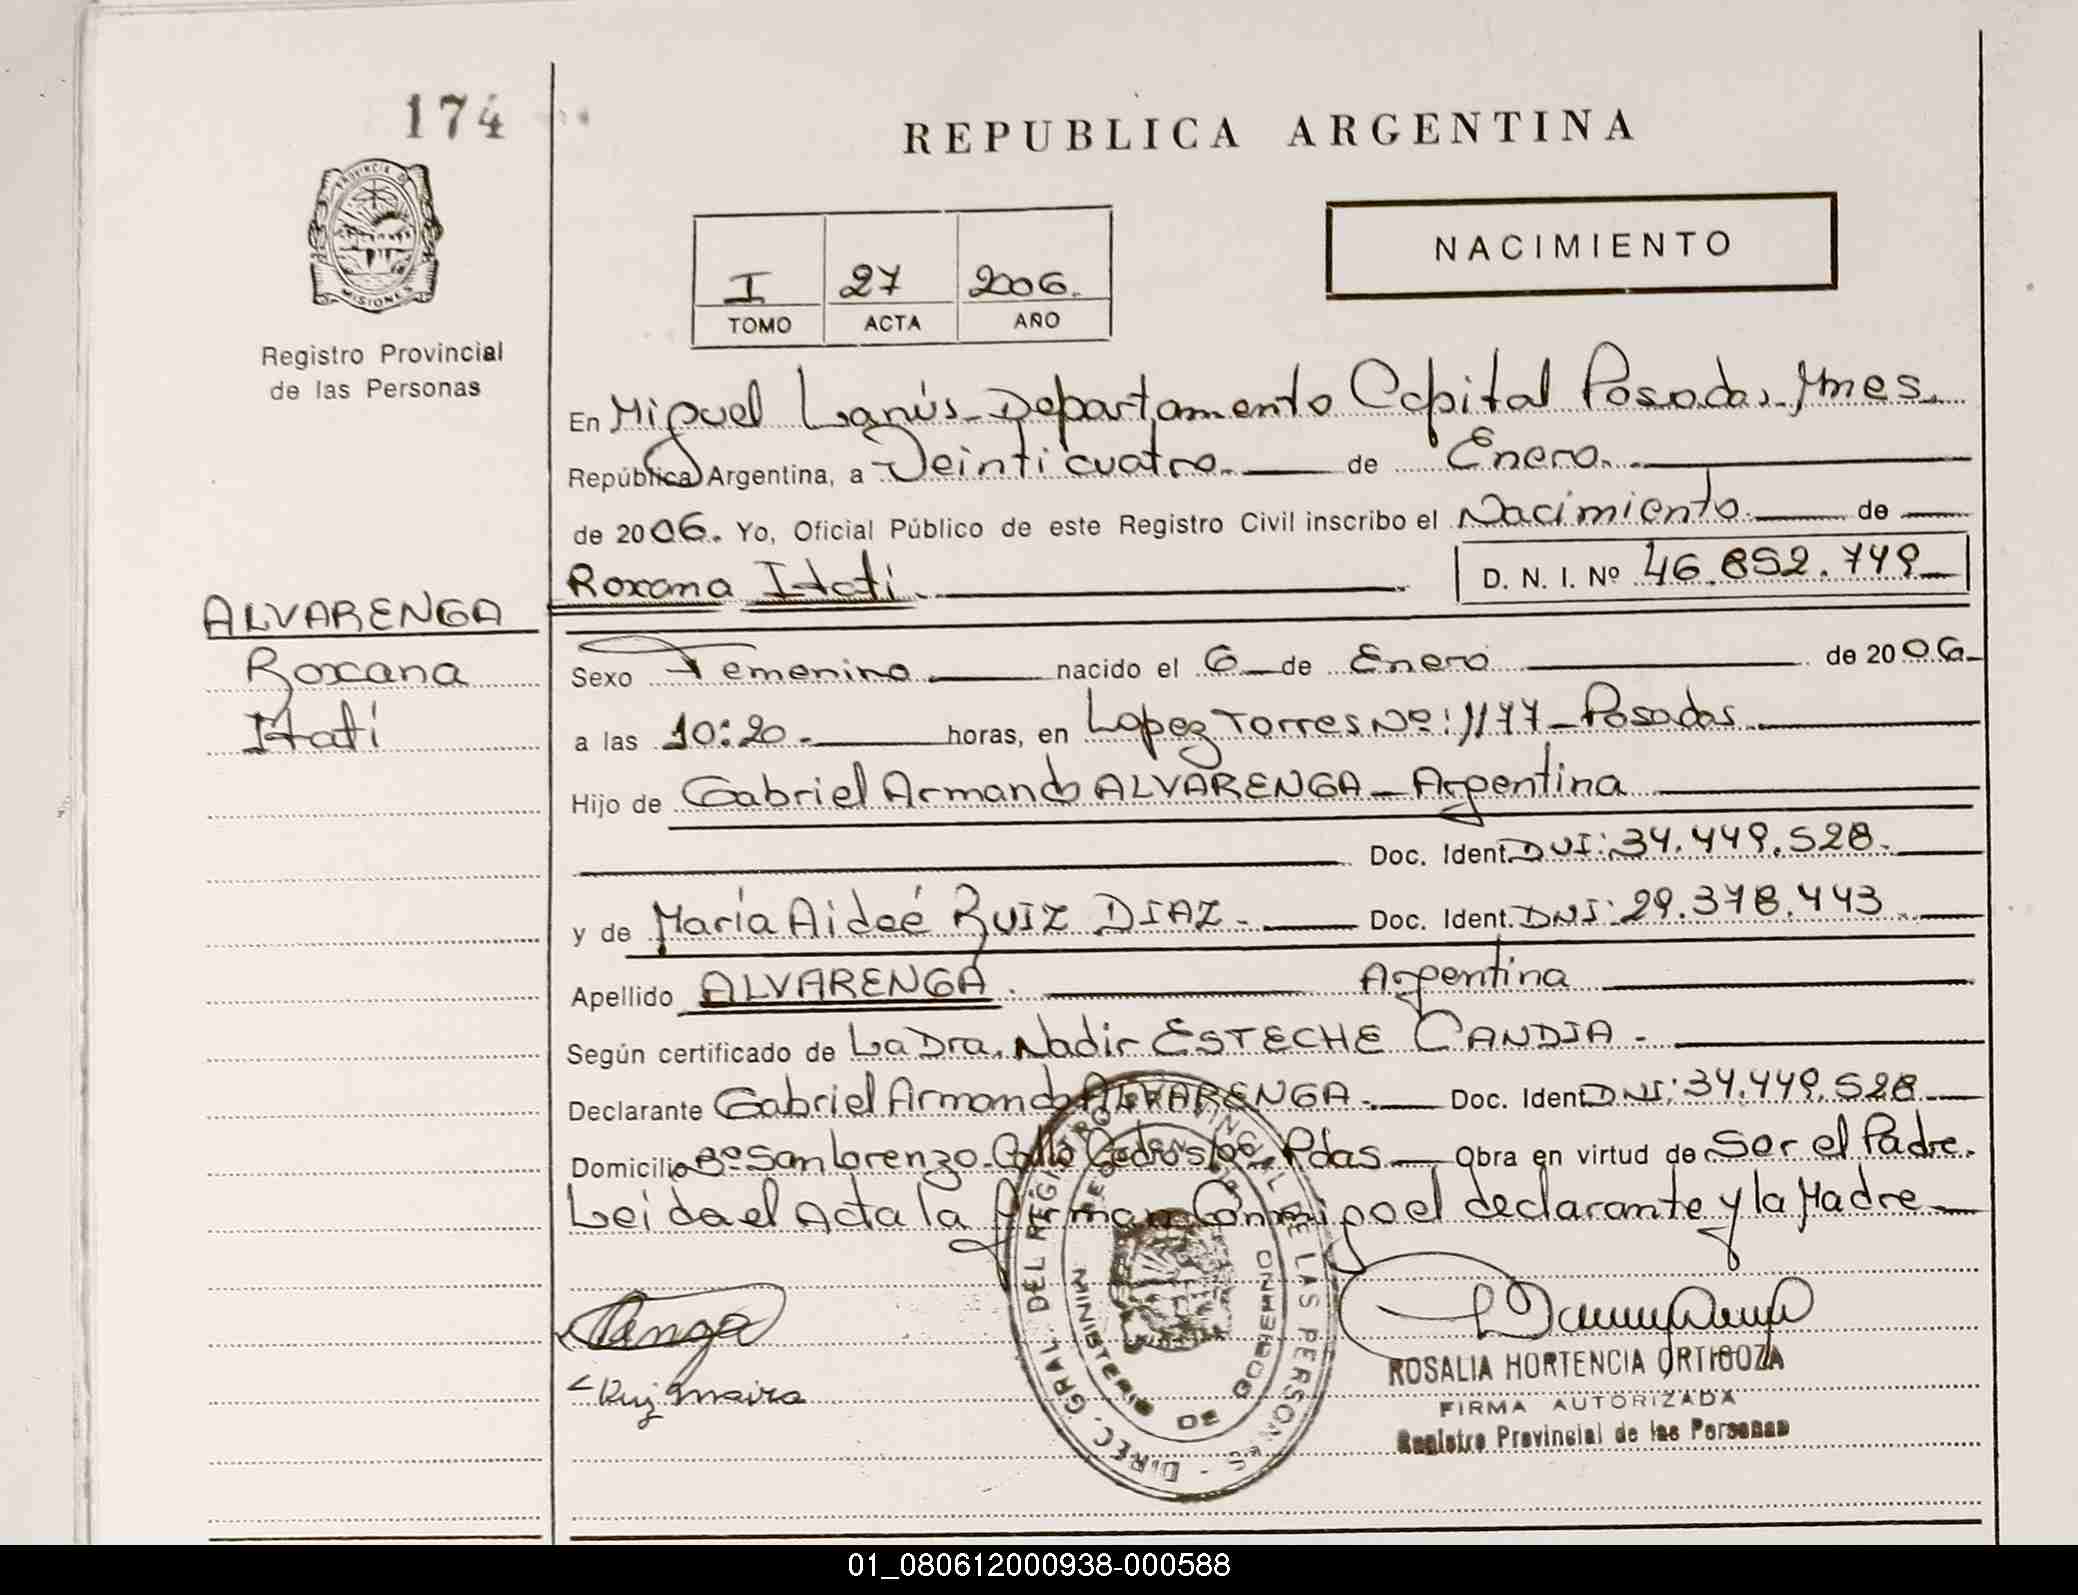 174
REPUBLICA ARGENTINA
PROVINCIA DE
MISIONES
NACIMIENTO
I 27 2006.
TOMO ACTA AÑO
Registro Provincial
de las Personas
En Miguel Lanús - Departamento Capital Posadas - Mnes.
República Argentina, a Veinticuatro. de Enero.
de 2006. Yo, Oficial Público de este Registro Civil inscribo el Nacimiento. de
Roxana Itati. D. N. I. Nº 46.852.749
ALVARENGA
Roxana
Itati
Sexo Femenino nacido el 6 de Enero de 2006
a las 10:20. horas, en Lopez Torres Nº: 1177 - Posadas
Hijo de Gabriel Armando ALVARENGA - Argentina
Doc. Ident. DNI: 34.449.528.
y de María Aideé RUIZ DIAZ. Doc. Ident. DNI: 29.378.443
Apellido ALVARENGA. Argentina
Según certificado de La Dra. Nadir ESTECHE CANDIA.
Declarante Gabriel Armando ALVARENGA. Doc. Ident. DNI: 34.449.528
Domicilio Bº San Lorenzo. Calle Pdas Obra en virtud de Ser el Padre.
Leida el Acta la firman Conmigo el declarante y la Madre
DIREC. GRAL. DEL REGISTRO PROVINCIAL DE LAS PERSONAS
MINISTERIO DE GOBIERNO
ROSALIA HORTENCIA ORTIGOZA
FIRMA AUTORIZADA
Registro Provincial de las Personas
01_080612000938-000588